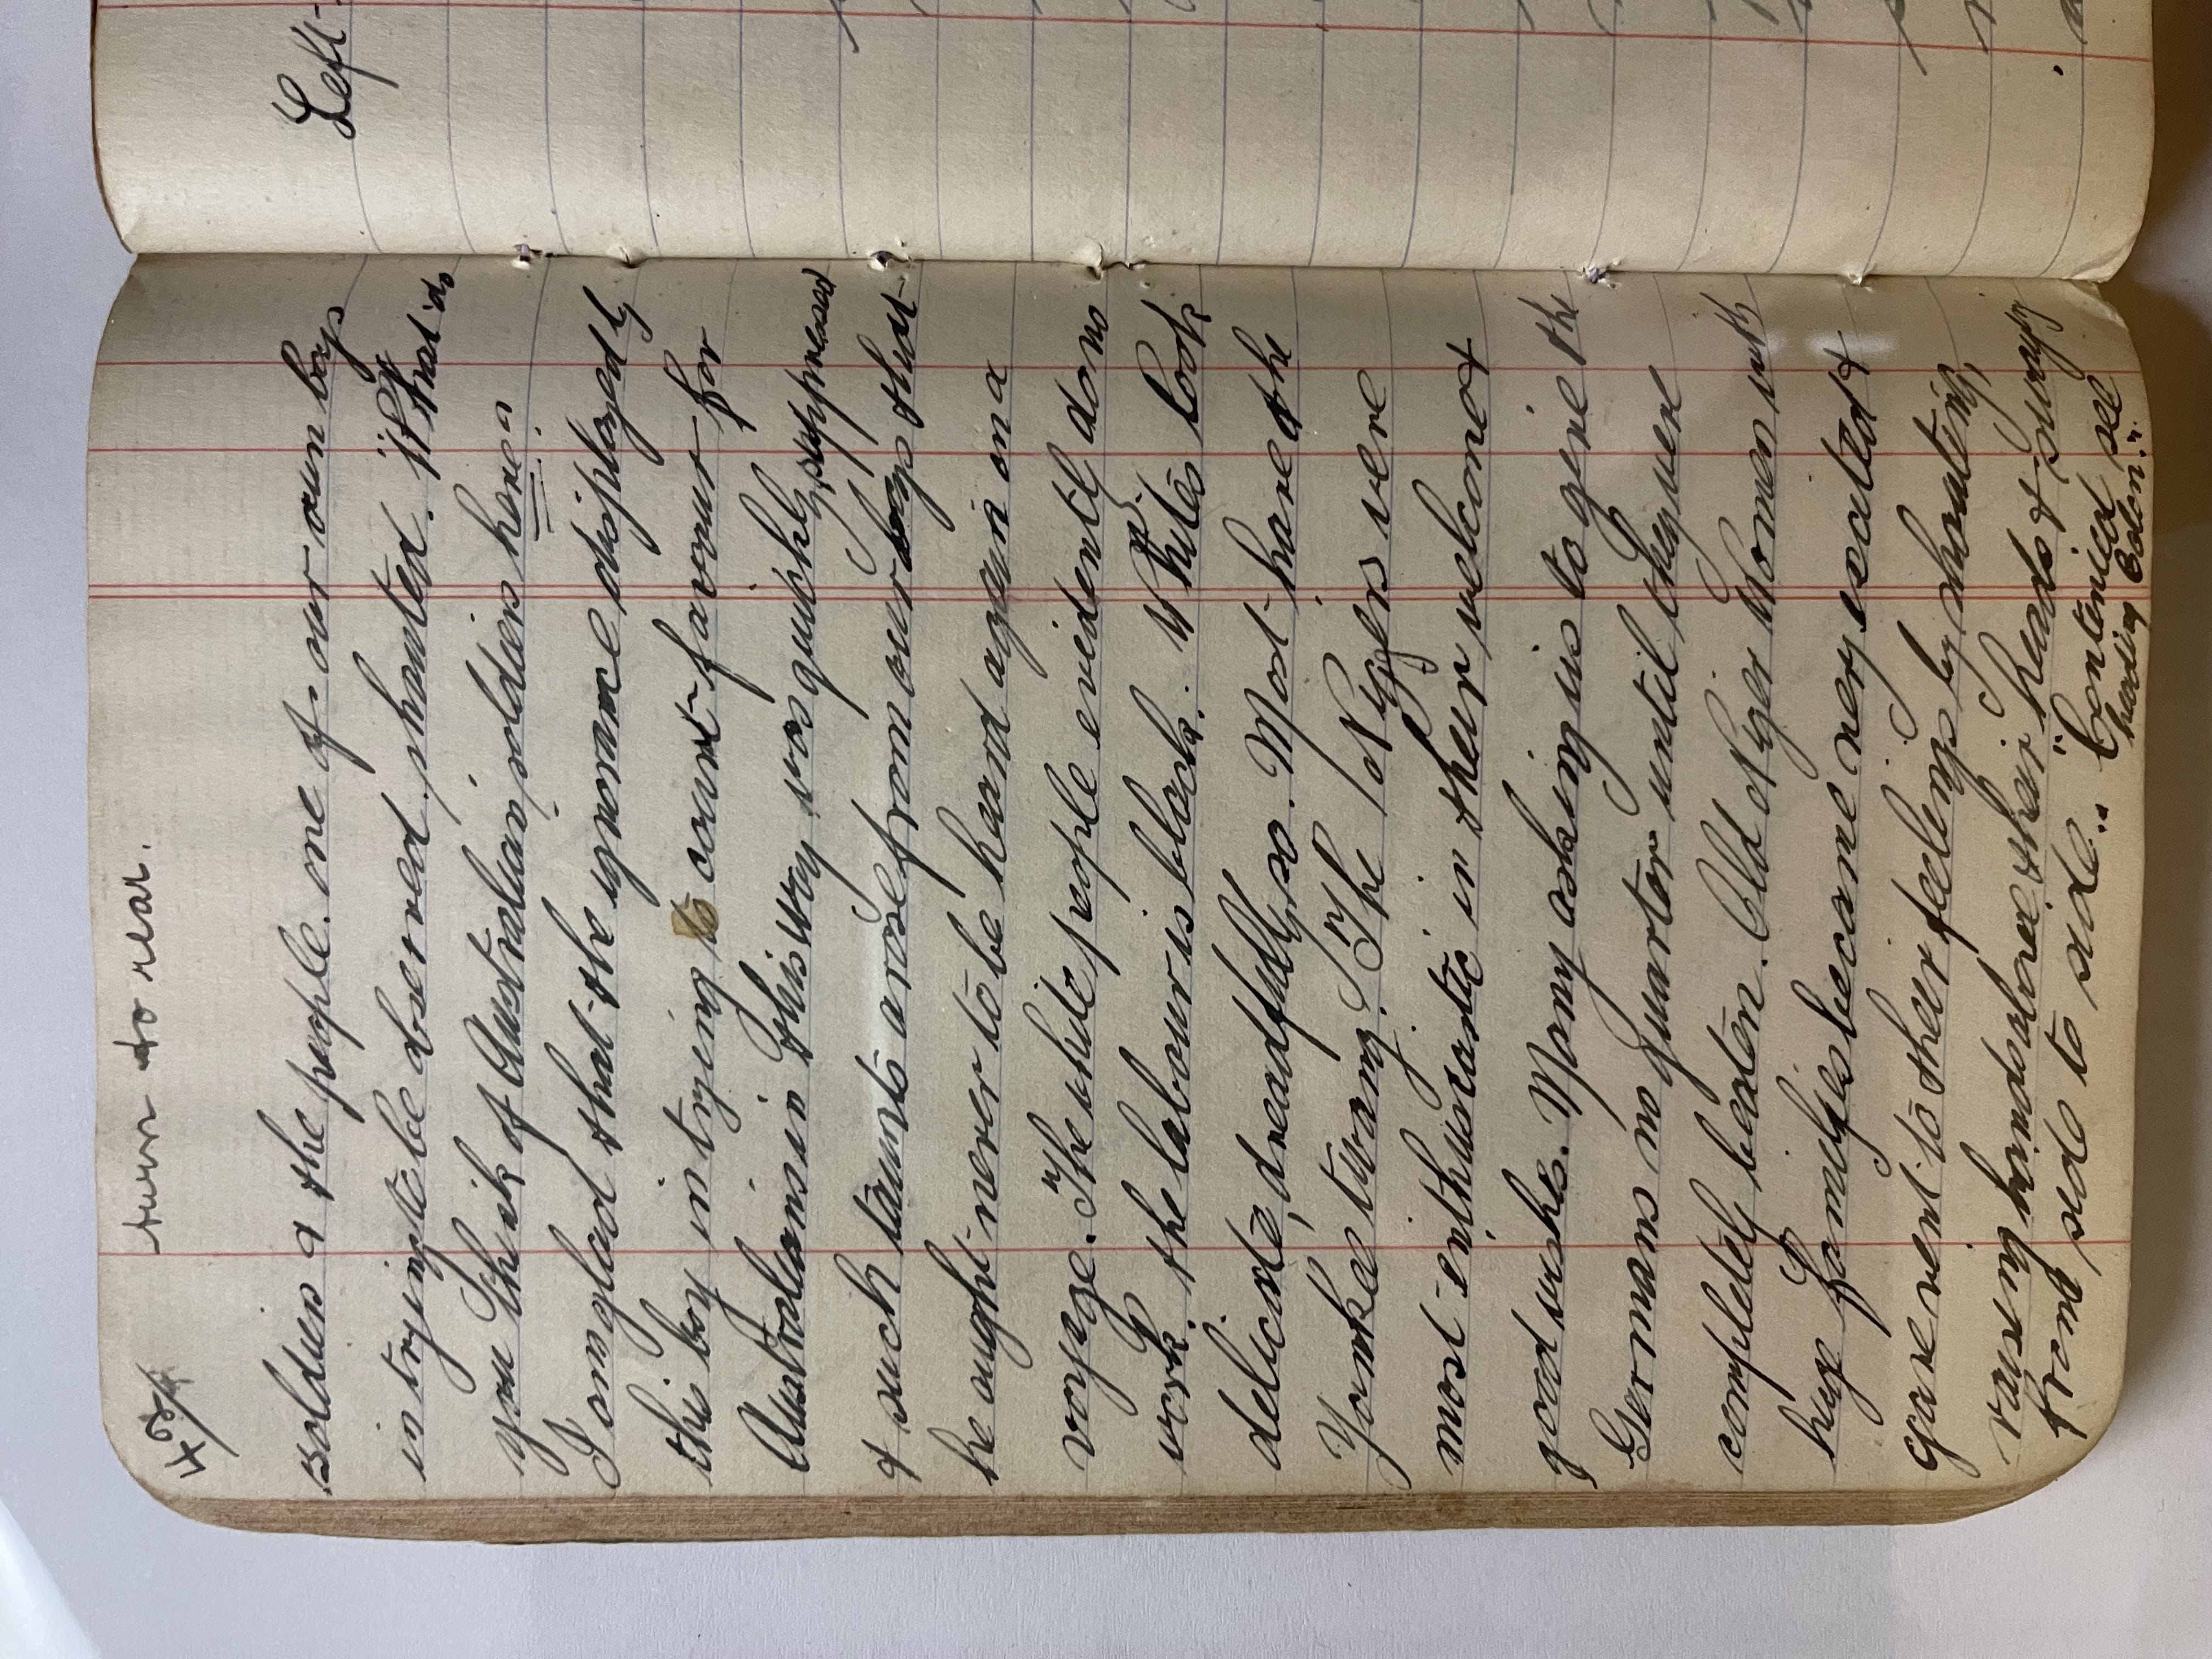 turn to rear.
soldiers & the people. one of our own boys
in trying to be observed shouted. "What do
you think of Australian soldiers here".
I am glad that the ignorance displayed by
this boy in trying to court favour for
Australians in this way was quickly suppressed
& such taunts arose from our boys that
he ought never to be heard again on a
voyage. The white people evidently do no
work. the labour is black. Whites look
delicate, dreadfully so. Most have the
Yankee twang. The Nigers were
most enthusiastic in their welcome &
good wishes. Many asking us to give the
Germans no quarter until they were
completely beaten. Old Niger Women with
huge familyes became very excited &
gave vent to their feelings by shouting,
raising hands above their heads & swaying
from side to side.. "Contenied see
heading Colon".
Left